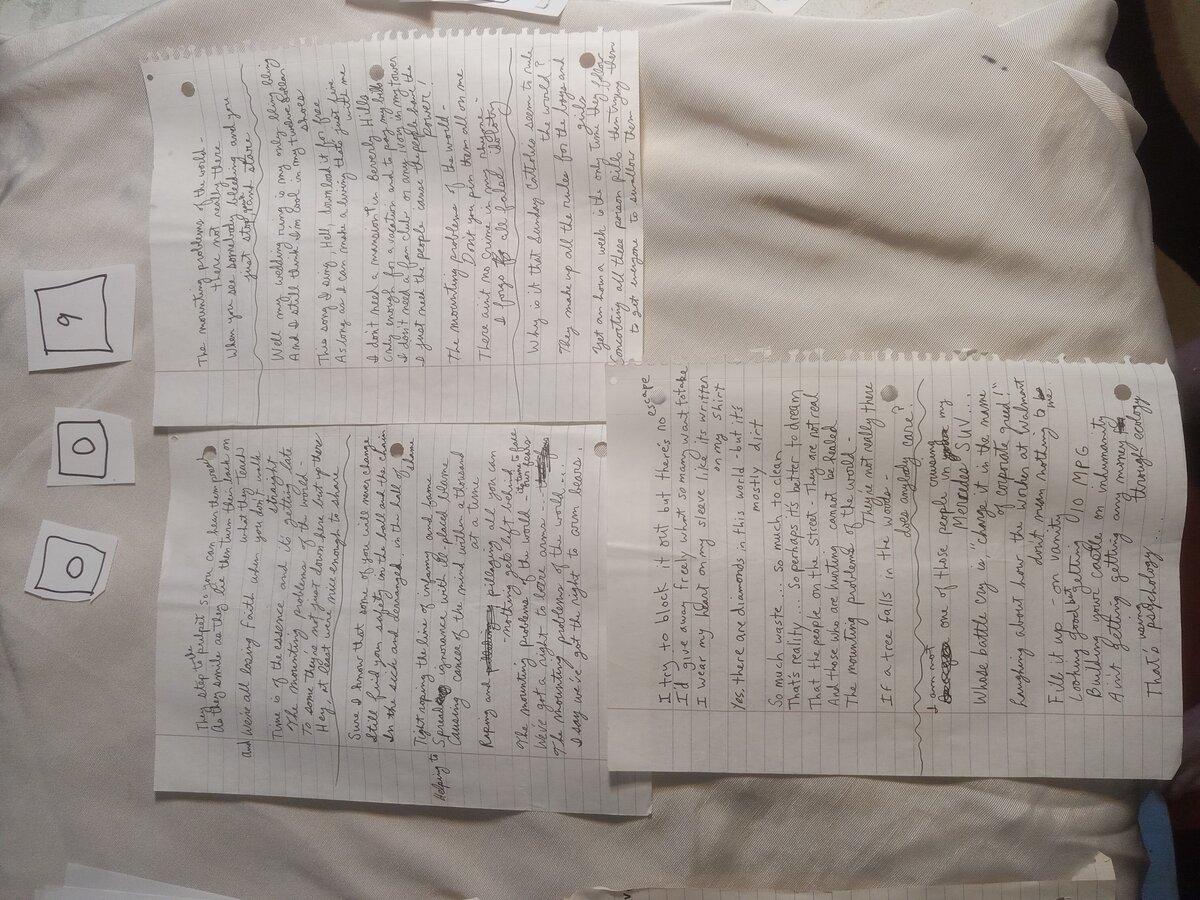 0
0
9
The mounting problems of the world -
there not really there
When you see somebody bleeding and you
just stop and stare
Well my wedding ring is my only bling bling
And I still think I'm cool in my twelve dollar
shoes
This song I sing, Hell, download it for free
As long as I can make a living that's just fine
with me
I don't need a mansion in Beverly Hills
Only enough for a vacation and to pay my bills
I don't need a fan club or any ivory in my tower
I just need the people cause the people have the
power!
The mounting problems of the world -
Don't you pin them all on me
There aint no crime in my rhyme -
I forgo all
Why is it that Sunday Catholics seem to rule
the world?
They make up all the rules for the boys and
girls
Yet an hour a week is the only time they follow
Concocting all these poison pills then trying
to get everyone to swallow them
They step to the pulpit so you can hear them preach
As they smile as they lie then turn their back on
what they teach
and We're all losing Faith when you don't walk
straight
Time is of the essence and it's getting late
The mounting problems of the world -
To some they're not just down here but up there
Hey, at least we're nice enough to share
Sure I know that some of you will never change
Still find your safety in the ball and the chain
In the sick and deranged in the hall of
shame
Tight roping the line of infamy and fame
Helping to Spread ignorance with the placed blame
Causing cancer of the mind with a thousand
at a time
Raping and pillaging all you can
- nothing gets left behind
The mounting problems of the world its time to face
our fears
We've got a right to bare arms -
The mounting problems of the world ...
I say we've got the right to arm bears.
I try to block it out but there's no
escape
I'd give away freely what so many want to take
I wear my heart on my sleeve like its written
on my shirt
Yes, there are diamonds in this world - but it's
mostly dirt
So much waste ... So much to clean
That's reality .... So perhaps it's better to dream
That the people on the street They are not real
And those who are hurting or cannot be healed
The mounting problems of the world -
They're not really there
If a tree falls in the woods -
does anybody care?
I am not one of those people in my
Mercedes SUV...
Whose battle cry is "change it in the name
of corporate greed!"
Laughing about how the worker at Walmart
don't mean nothing to me.
Fill it up - on vanity
Looking good but getting 10 MPG
Building your castle on inhumanity
Aint getting any money
That's using psychology ... through ecology